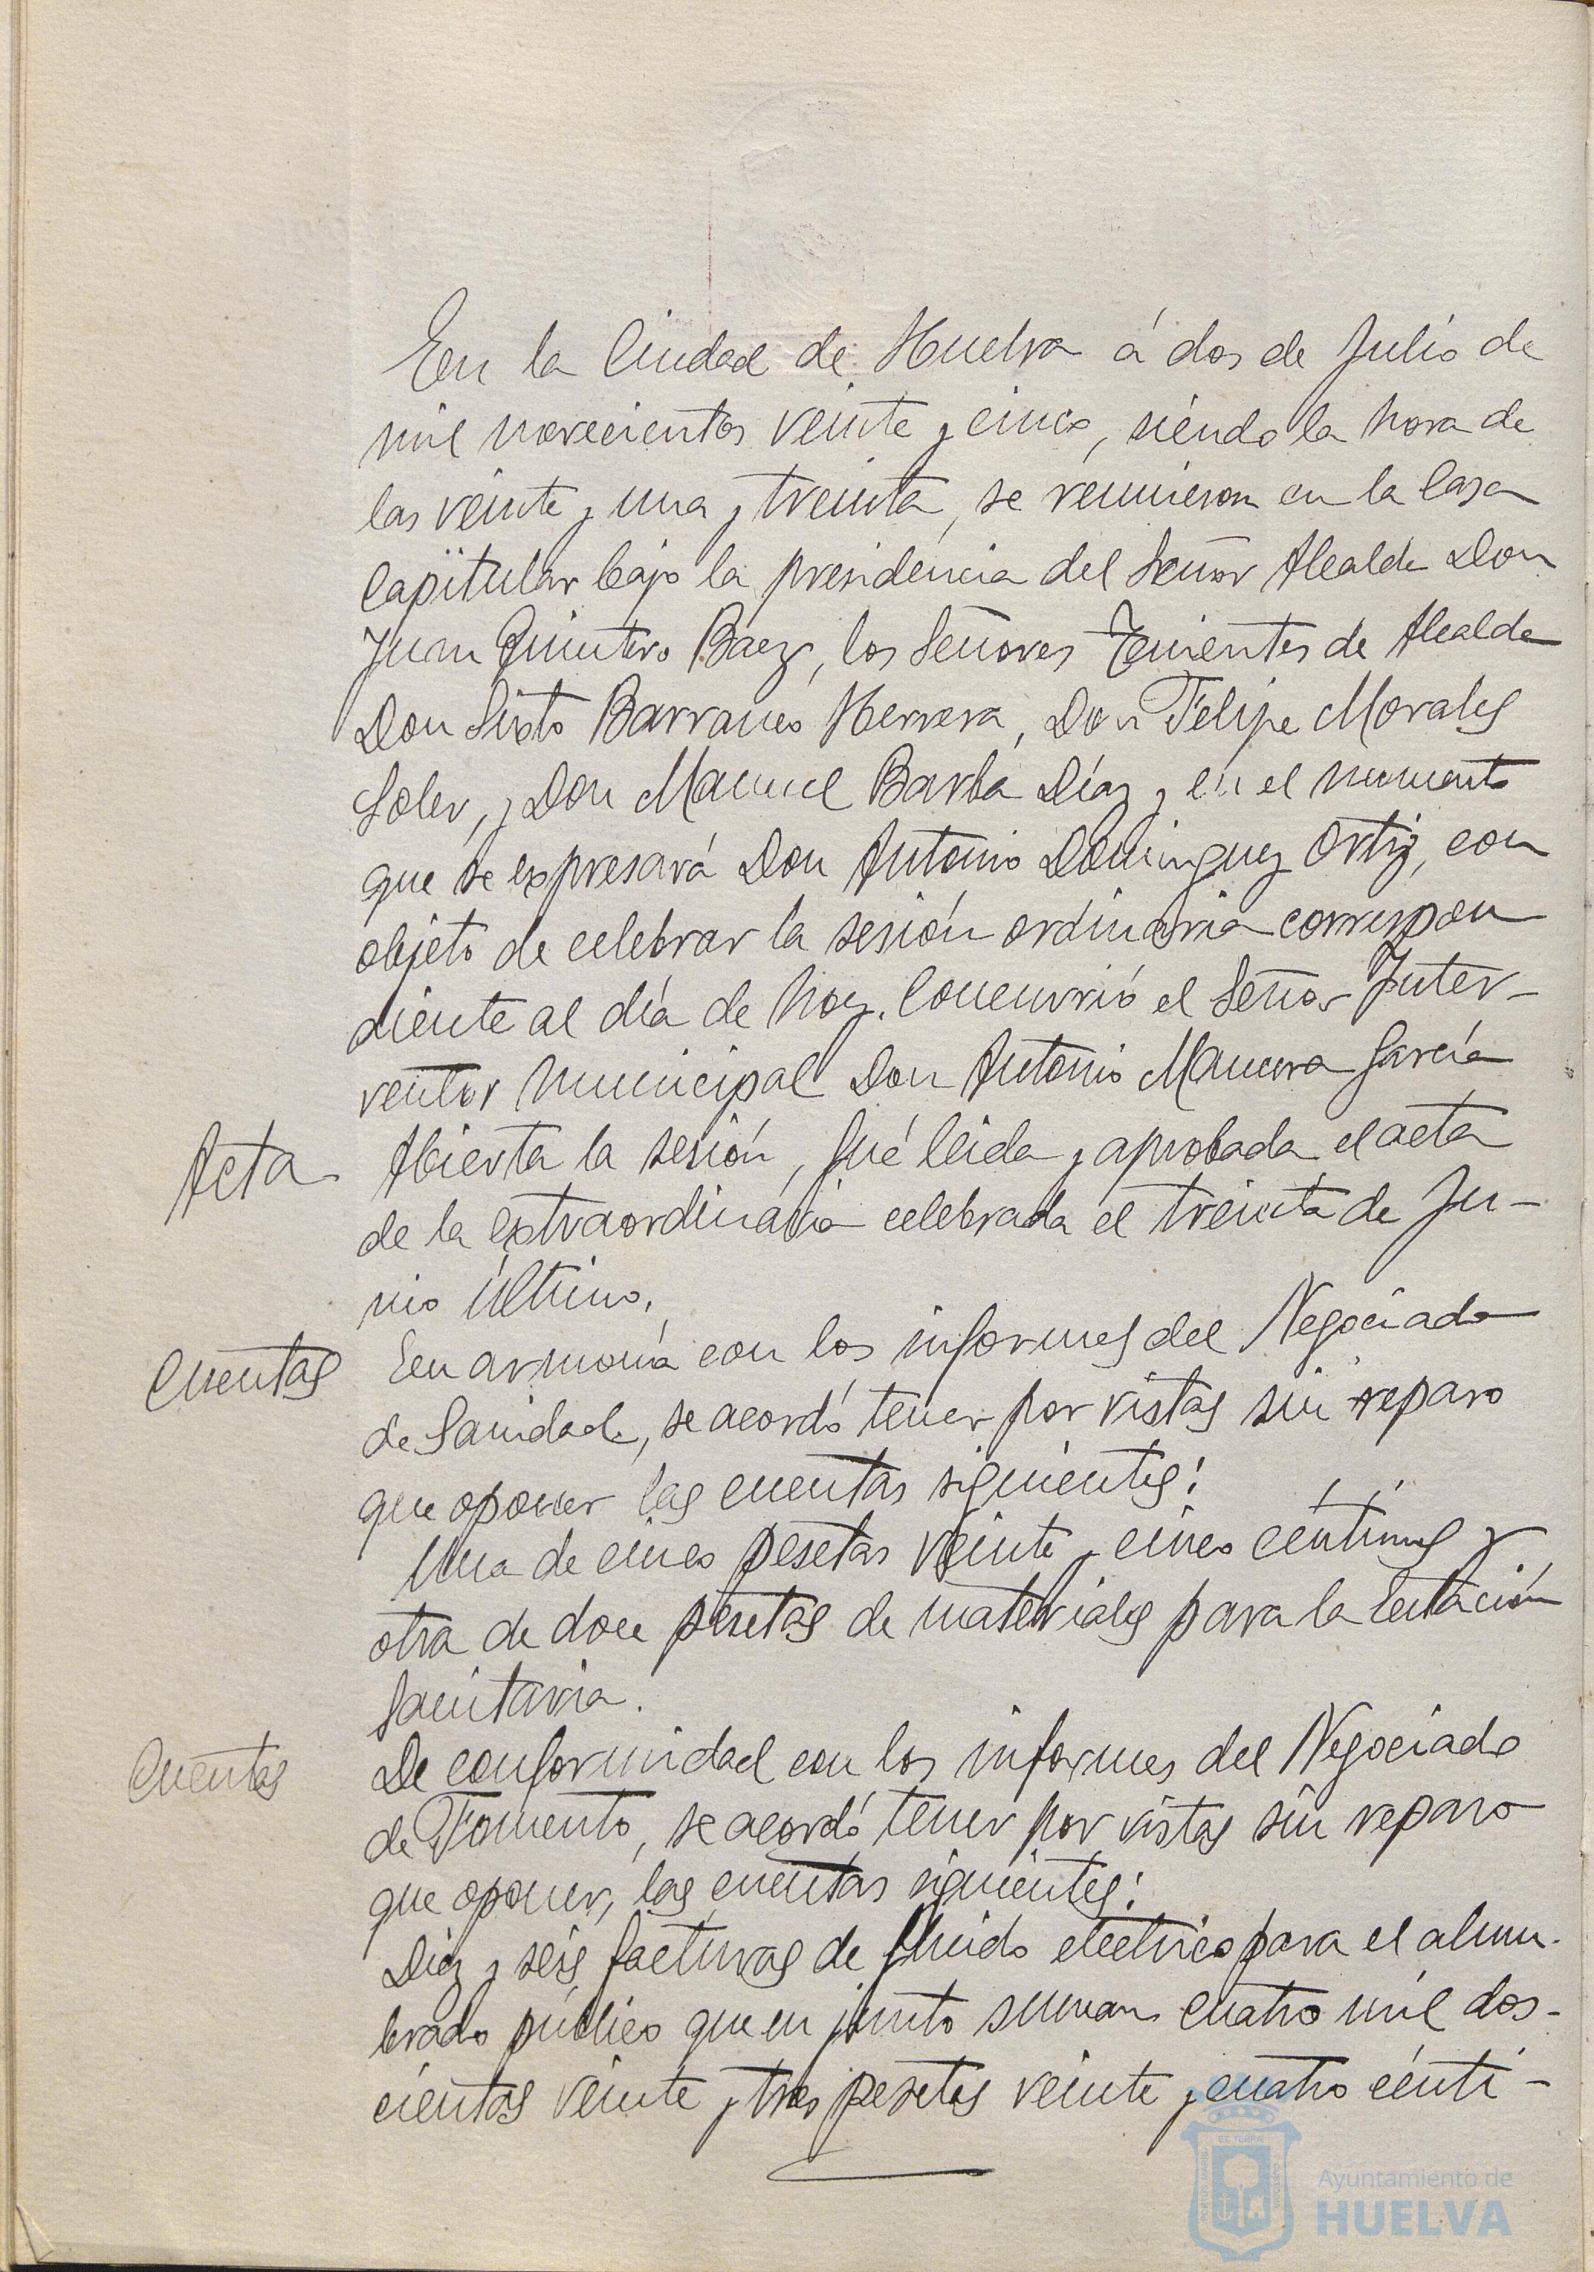 En la Ciudad de Huelva á dos de Julio de
mil novecientos veinte y cinco, siendo la hora de
las veinte y una y treinta, se reunieron en la Casa
Capitular bajo la presidencia del Señor Alcalde Don
Juan Quintero Baez, los Señores Tenientes de Alcalde
Don Sixto Barranco Herrera, Don Felipe Morales
Soler, y Don Manuel Barba Díaz y en el momento
que se expresará Don Antonio Dominguez Ortiz, con
objeto de celebrar la sesión ordinaria correspon
diente al día de hoy. Concurrió el Señor Inter-
ventor municipal Don Antonio Mancera García
Acta
Abierta la sesión, fué leida y aprobada el acta
de la extraordinaria celebrada el treinta de Ju-
nio último.
Cuentas
En armonía con los informes del Negociado
de Sanidad, se acordó tener por vistas sin reparo
que oponer las cuentas siguientes:
Una de cinco pesetas veinte y cinco céntimos y
otra de doce pesetas de materiales para la Estación
Sanitaria.
Cuentas
De conformidad con los informes del Negociado
de Fomento, se acordó tener por vistas sin reparo
que oponer, las cuentas siguientes:
Diez y seis facturas de fluido electrico para el alum-
brado público que en junto suman cuatro mil dos-
cientas veinte y tres pesetas veinte y cuatro cénti-
Ayuntamiento de
HUELVA